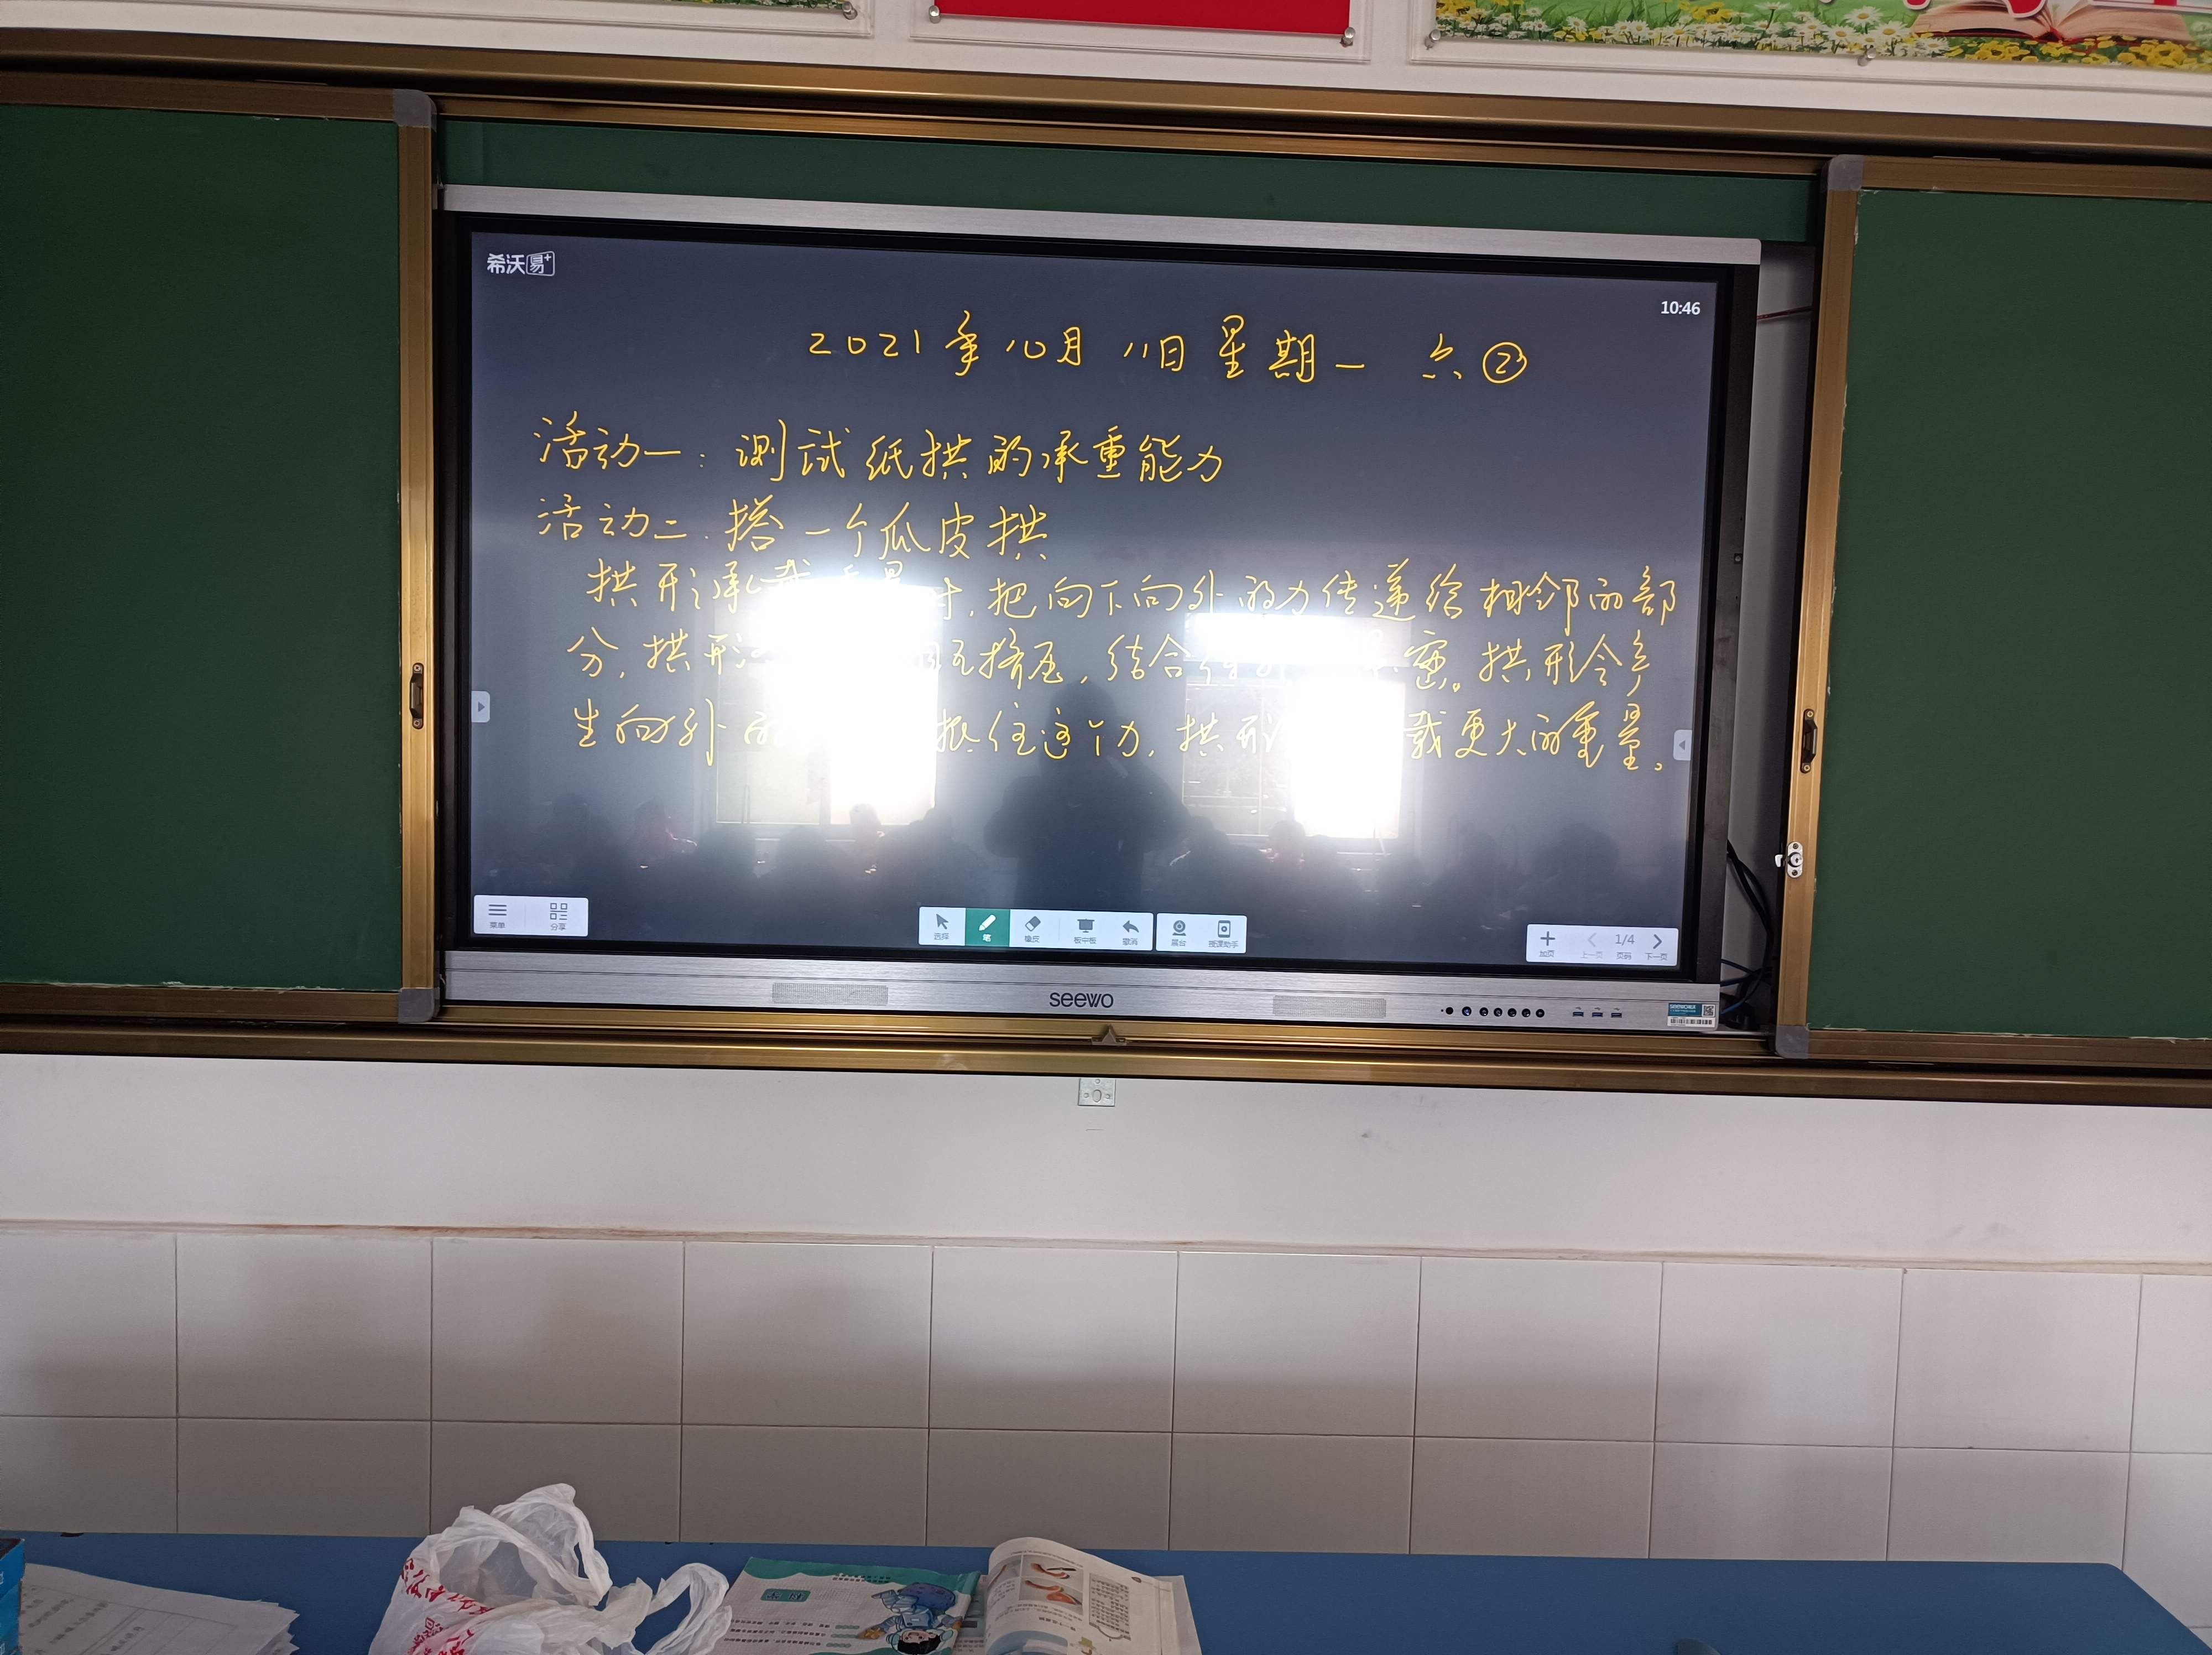 希沃易+
10:46
2021年10月11日星期一 六②
活动一：测试纸拱的承重能力
活动二：搭一个瓜皮拱
拱形承载重量时，把向下向外的力传递给相邻的部
分，拱形 相互挤压，结合 密。拱形会产
生向外的 抵住这个力，拱形 载更大的重量。
菜单 分享
选择 笔 橡皮 板中板 撤消 展台 授课助手
加页 1/4
seewo